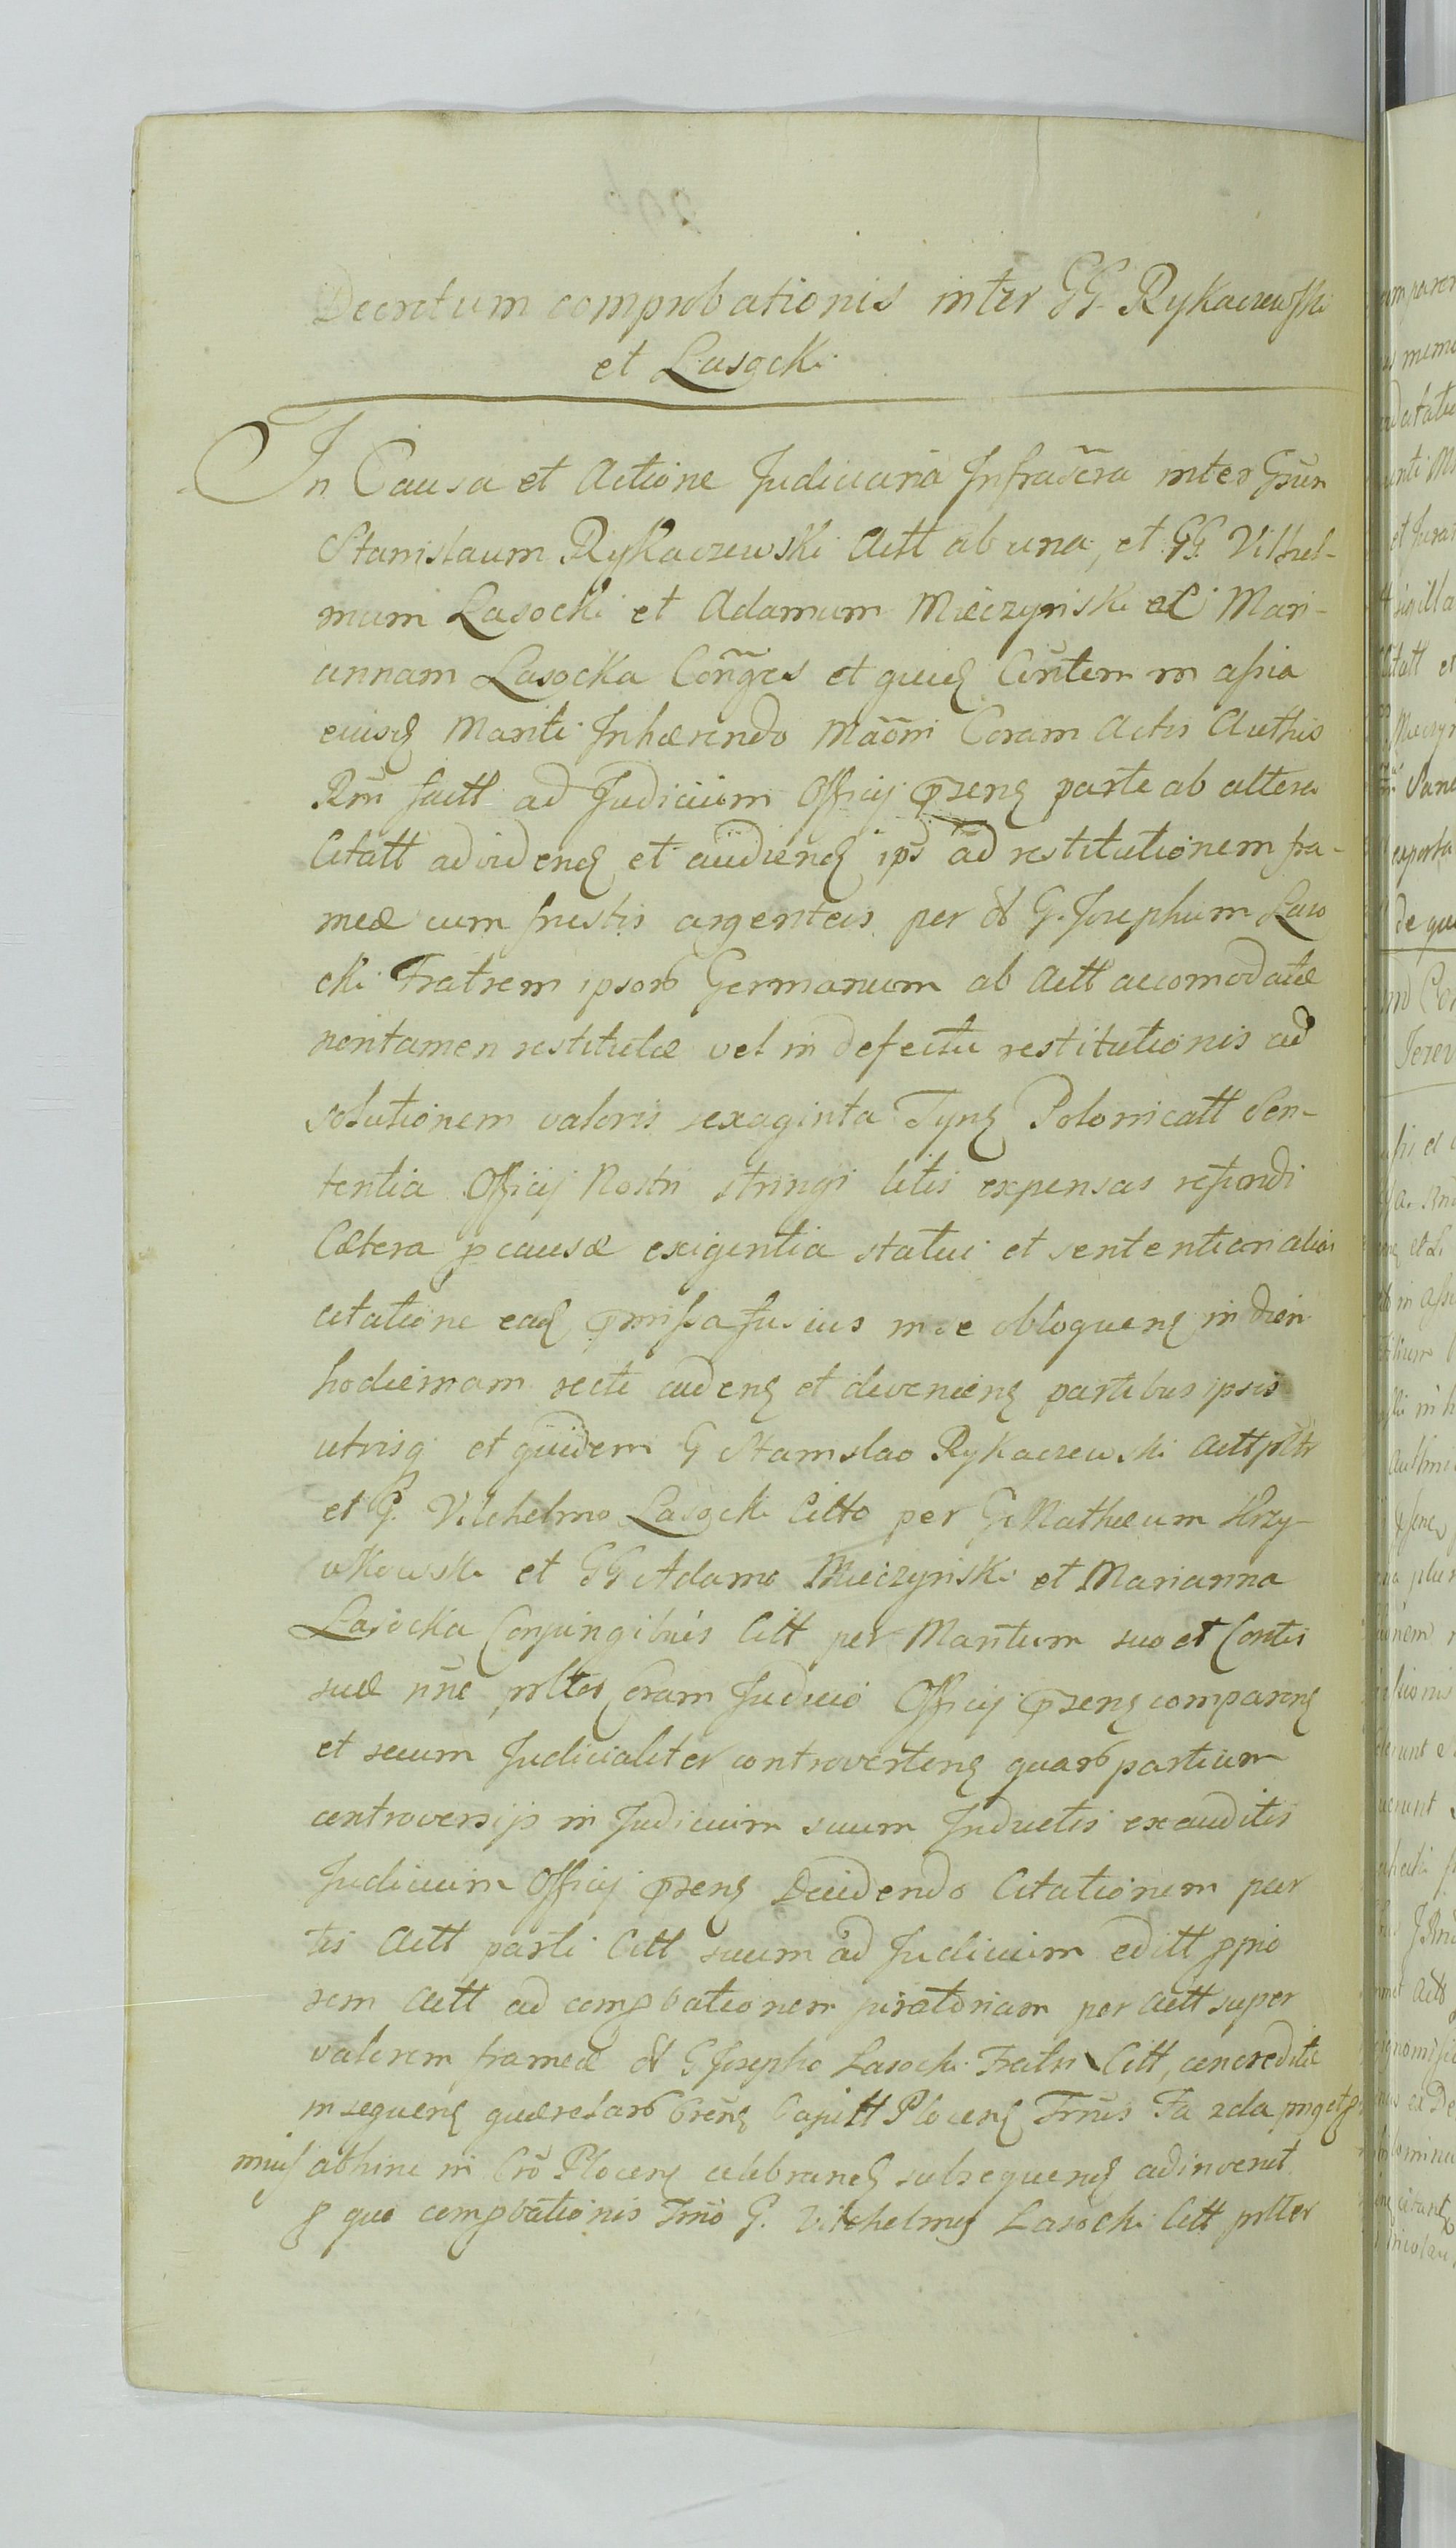 Decretum comprobationis inter GG. Rykaczewski
et Lasocki
In Causa et Actione Judiciaria Infrascra inter Gsum
Stanislaum Rykaczewski Actt ab una, et GG. Vilhel-
mum Lasocki et Adamum Mieczynski et Mari-
annam Lasocka Conges et quidę Contem in assia
eiusdę Mariti Inhærendo Maoni Coram Actis Authis
Rm factt ad Judicium Officij pnszenę parte ab altera
Citatt ad videndę et audiendę ips ad restitutionem fra-
meæ cum frustis argenteis per ol G. Josephum Laso
cki Fratrem ipsorō Germanum ab Actt accomodatæ
nontamen restitutæ vel in defectu restitutionis ad
solutionem valoris sexaginta Tynę Polonicatt Sen-
tentia Officij Nostri stringi litis expensas refundi
Cætera p causæ exigentia statui et sententiari alias
citatione eadę pmissa fusius in se obloquenę in diem
hodiernam recte cadenę et devenienę partibus ipsis
utrisq et quidem G Stanislao Rykaczewski Actt pltr
et G. Vilchelmo Lasocki Citto per G. Matheum Krzy-
wkowski et GG Adamo Mieczynski et Marianna
Lasocka Conjungibus Citt per Maritum suo et Contis
suæ nne pltes Coram Judicio Officij pnszenę comparenę
et secum Judicialiter controvertenę quarō partium
controversijs in Judicium suum Inductis exauditis
Judicium Officij pnszenę Decidendo Citationem par
tis Actt parti Citt suum ad Judicium editt ppio
rem Actt ad compbationem juratoriam per Actt super
valorem frameæ ol G Josepho Lasocki Fratri Citt, concreditæ
in sequenę querelarō Crenę Capitt Plocenę Trnis Fa 2da pngetp
miuş abhinc in Cro Plocenę celebrandę subsequenę adinvenit
p quo compbationis Tmo G. Vilchelmus Lasocki Citt pltter